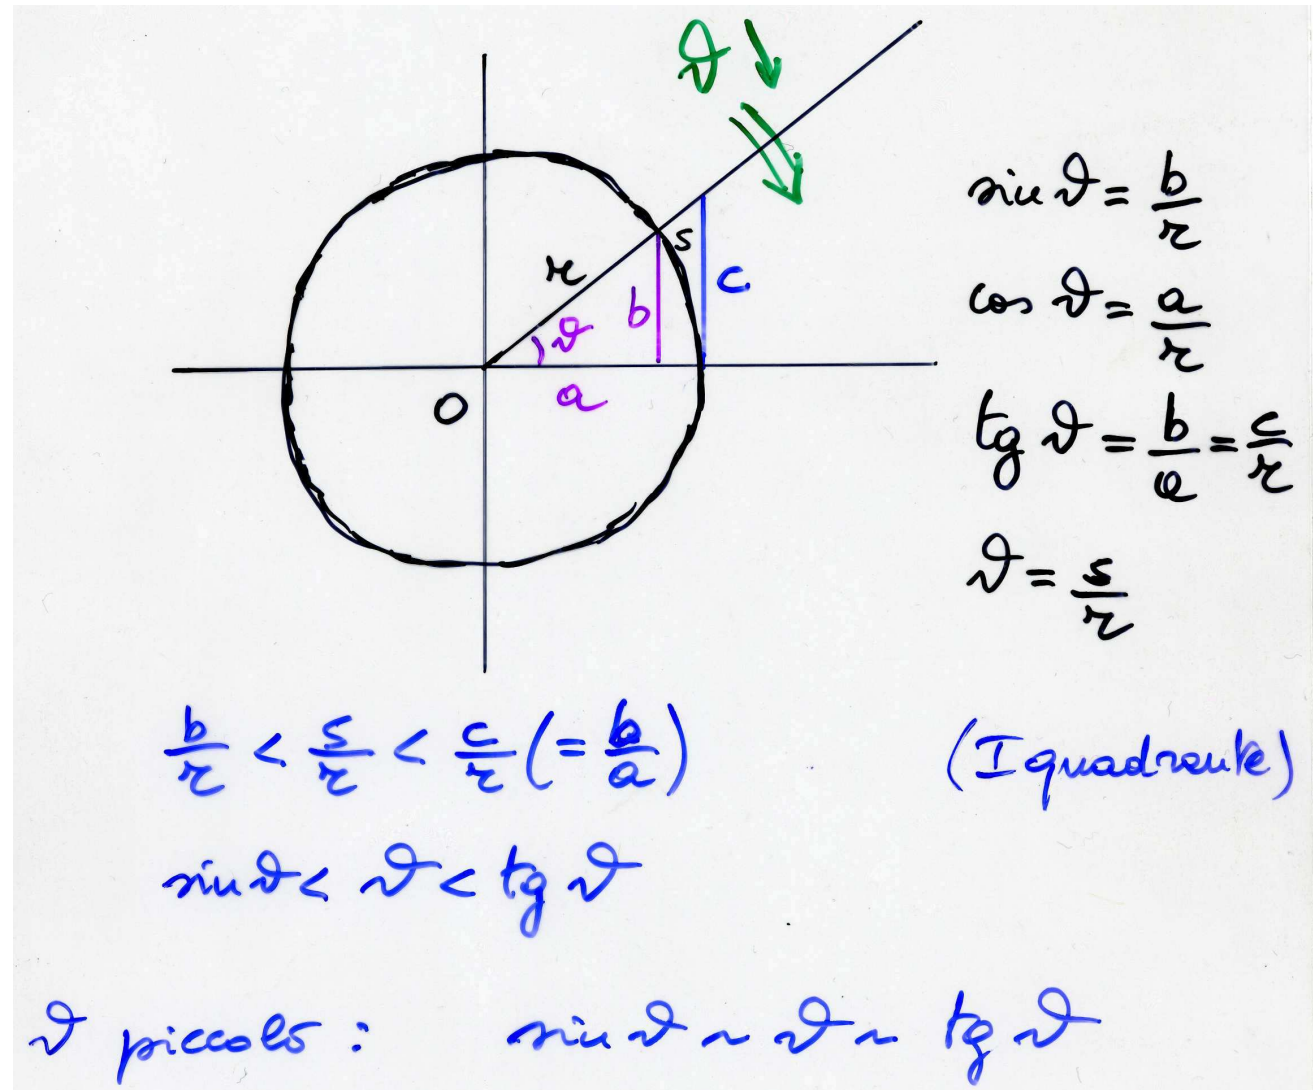 ϑ ↓
r s
b c
ϑ
O a
sin ϑ = b/r
cos ϑ = a/r
tg ϑ = b/a = c/r
ϑ = s/r
b/r < s/r < c/r (= b/a) (I quadrante)
sin ϑ < ϑ < tg ϑ
ϑ piccolo : sin ϑ ~ ϑ ~ tg ϑ